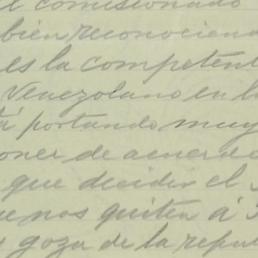 el comisionado
bien reconociend
es la competent
Venezolano en la
portando muy
oner de acuerdo
que decider el
nos quiten á
y goza de la repu